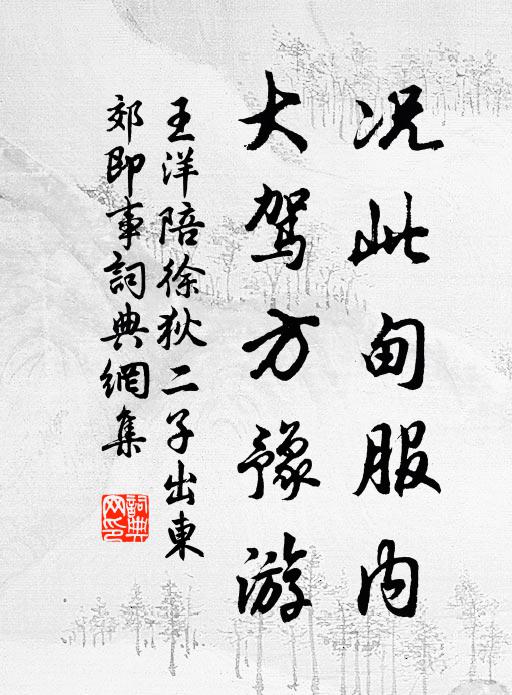 况此甸服内
大驾方豫游
王洋陪徐狄二子出東
郊即事詞典網集
詞典網印